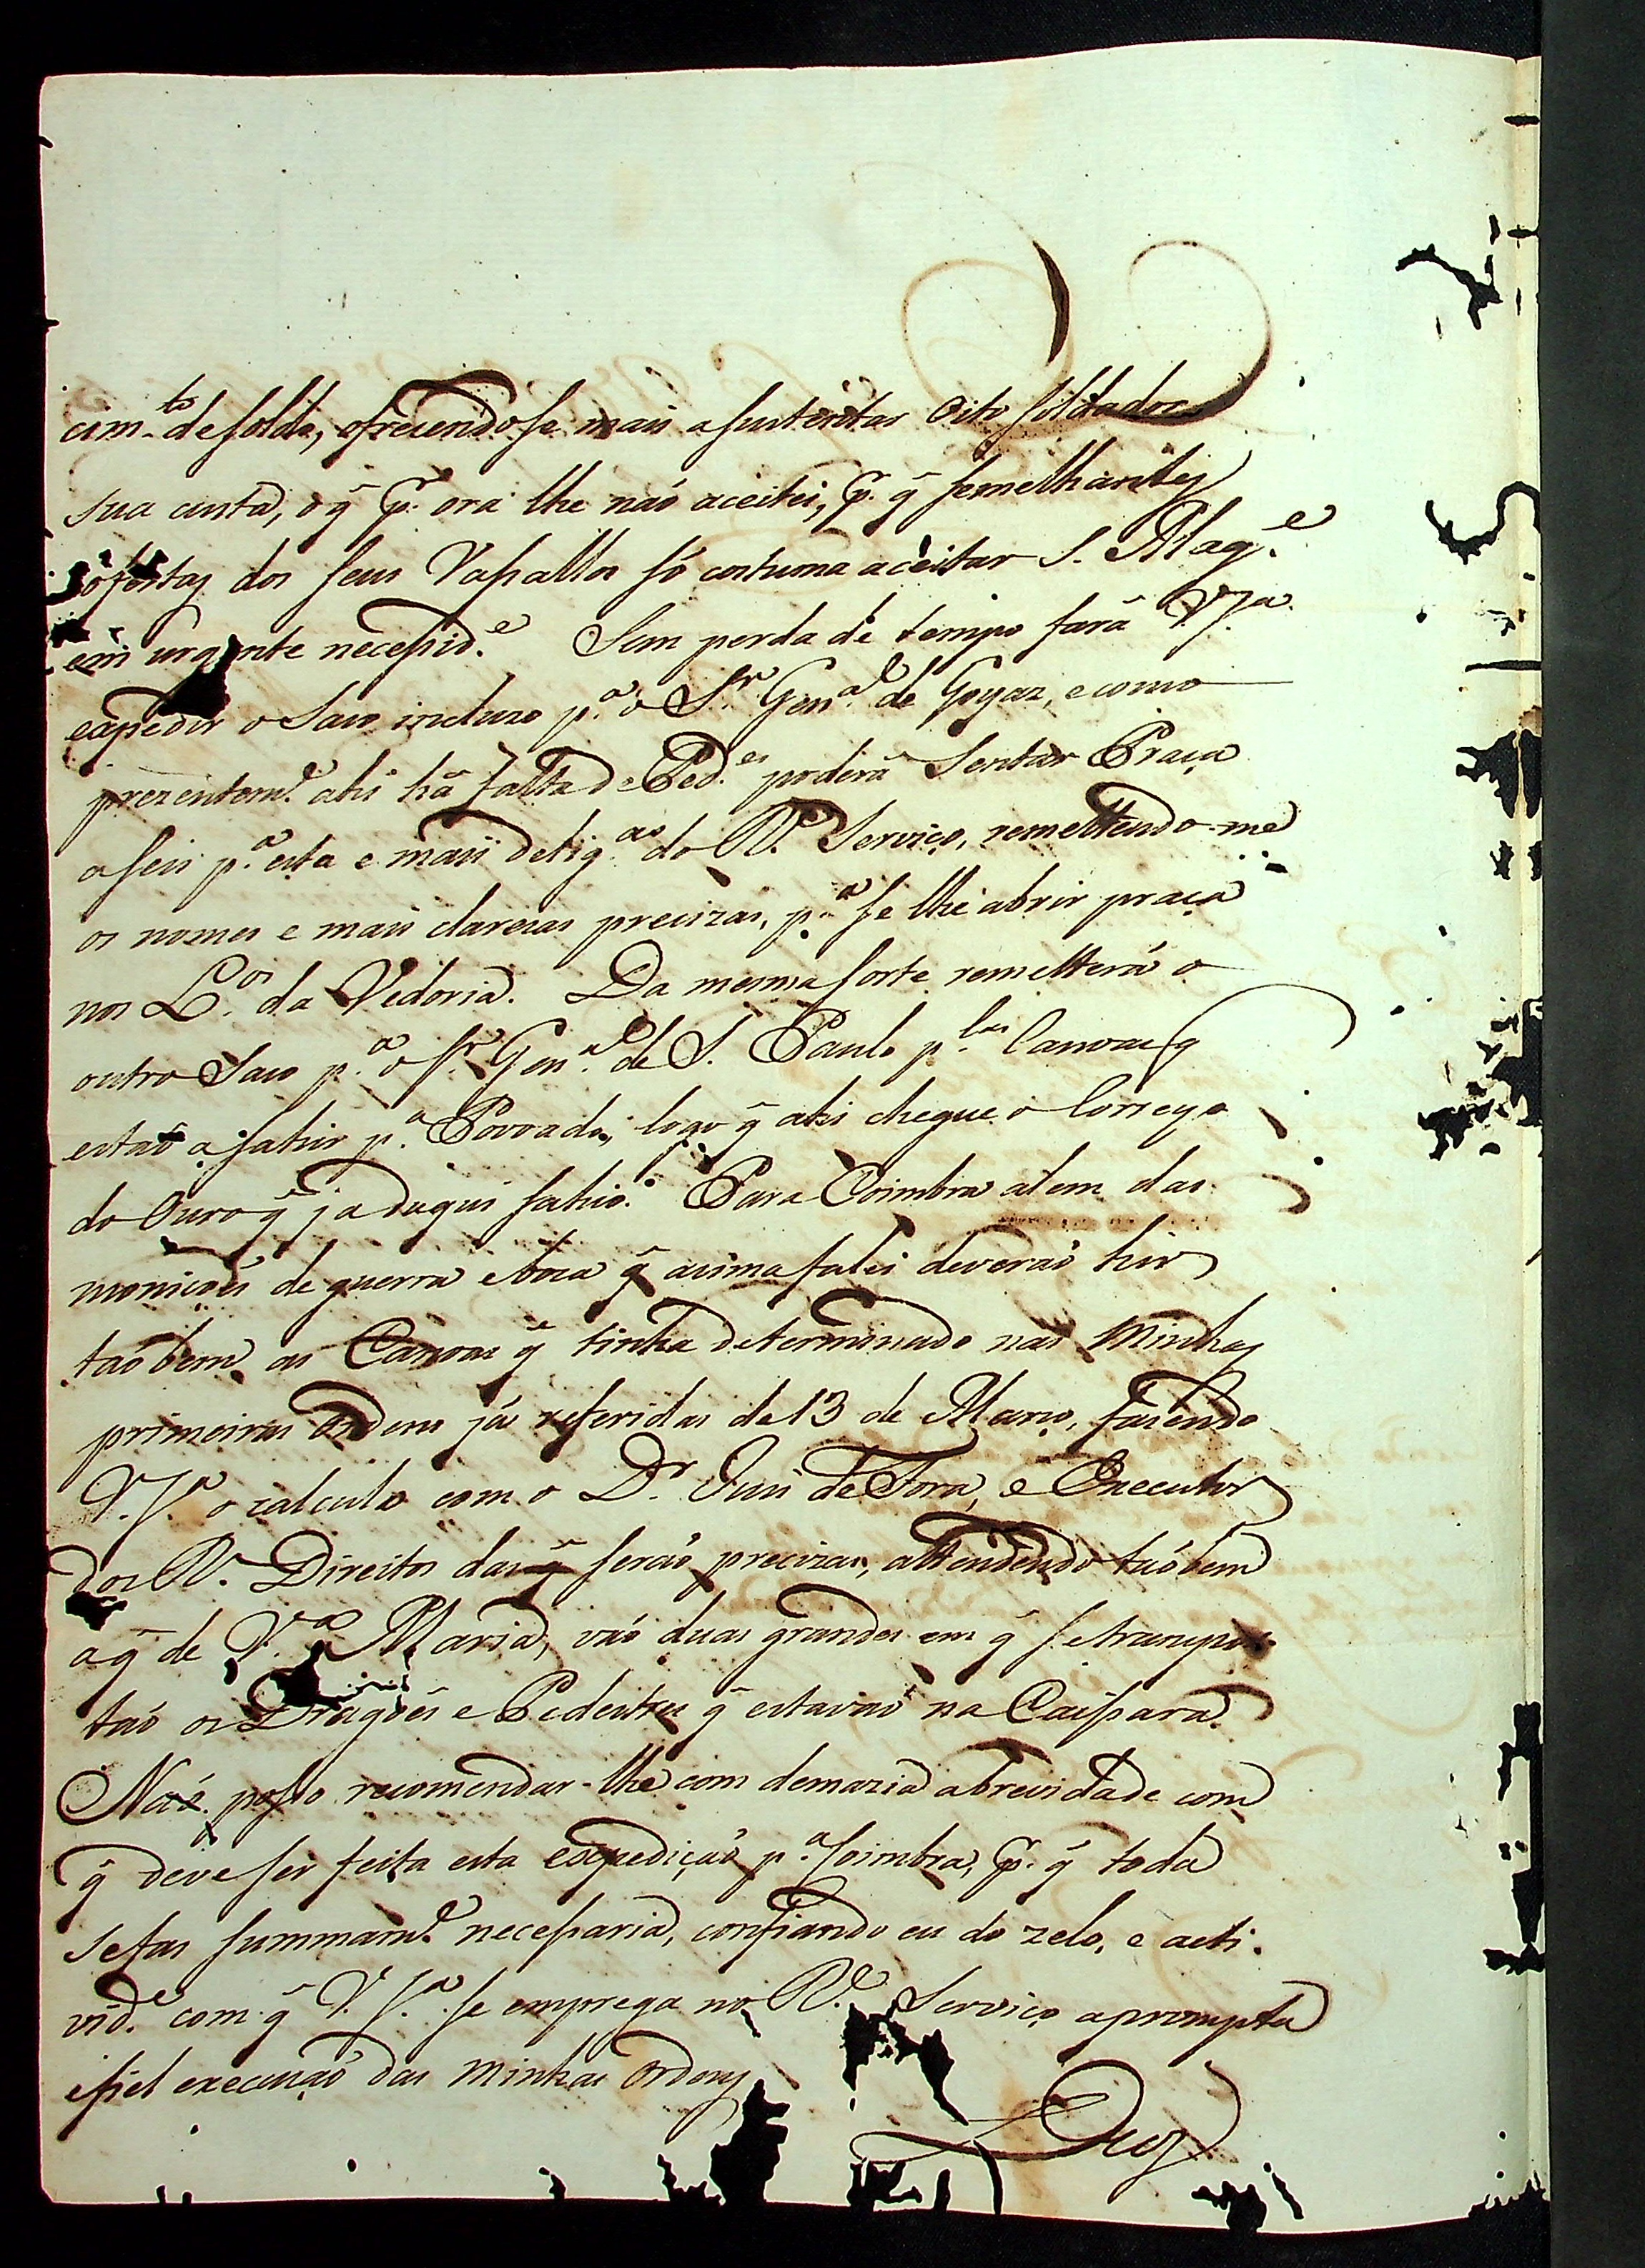 cim.to de soldo, ofrecendose mais a sustentar oito soldados
sua custa, o q̃ p.r ora lhe naõ aceitei, p.r q̃ semelhantes
ofertas dos seus Vassallos só costuma aceitar S. Mag.e
em urgente necessid.e Sem perda de tempo fará V. S.a
expedir o Saco incluzo p.a o S.r Gen.al de Goyaz, e como
prezentem.e ahi há falta de Ped.es poderá Sentar Praça
a seis p.a esta e mais delig.as do R. Serviço, remettendo-me
os nomes e mais clarezas precizas, p.a se lhe abrir praça
nos L.os da Vedoria. Da mesma sorte remetterá o
outro Saco p.a o S.r Gen.al de S. Paulo p.las Canoas q̃
estaõ a sahir p.a Povoado, logo q̃ ahi chegue o Correyo
do Ouro q̃ ja daqui sahio. Para Coimbra alem das
moniçoẽs de guerra e boca q̃ acima falei deveraõ hir
taõbem as Canoas q̃ tinha determinado nas Minhas
primeiras Ordens já referidas de 13 de Março, fazendo
V. S.a o calculo com o D.r Juis de Fora, e Executor
dos R. Direitos das q̃ seraõ precizas, attendendo taõbem
a q̃ de V.a Maria, vaõ duas grandes em q̃ se transpor
taõ os Dragoẽs e Pedestres q̃ estavaõ na Caissara.
Naõ posso recomendar-lhe com demazia a brevidade com
q̃ deve ser feita esta expediçaõ p.a Coimbra, p.r q̃ toda
se fas summam.e necessaria, confiando eu do zelo, e acti-
vid.e com q̃ V. S.a se emprega no R.l Serviço a prompta
e fiel execuçaõ das Minhas Ordens
Deos